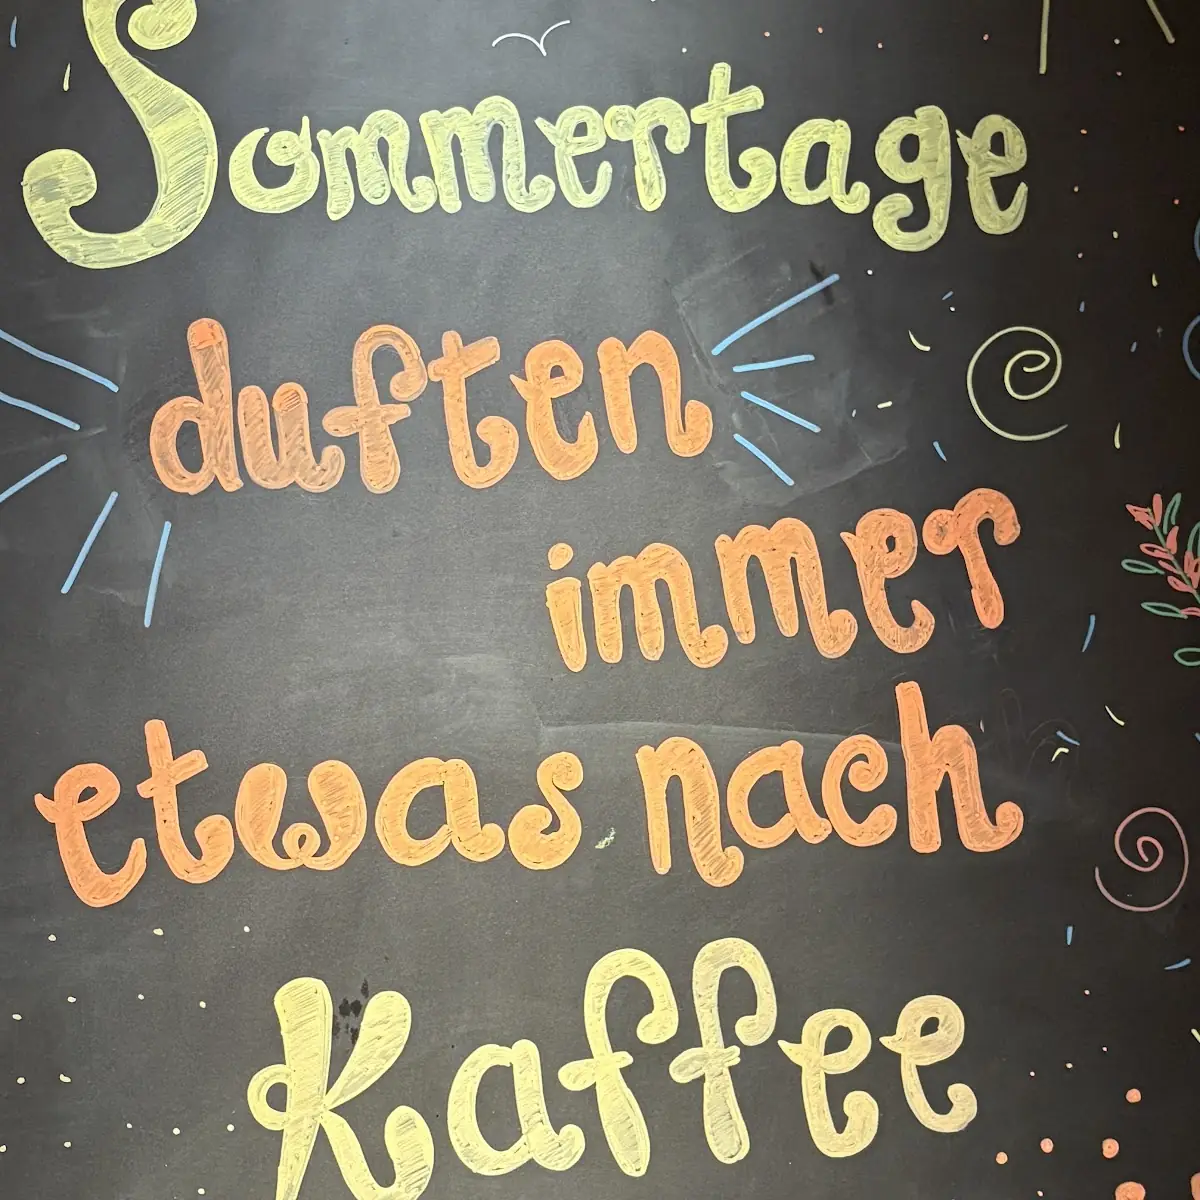 Sommertage
duften
immer
etwas nach
Kaffee